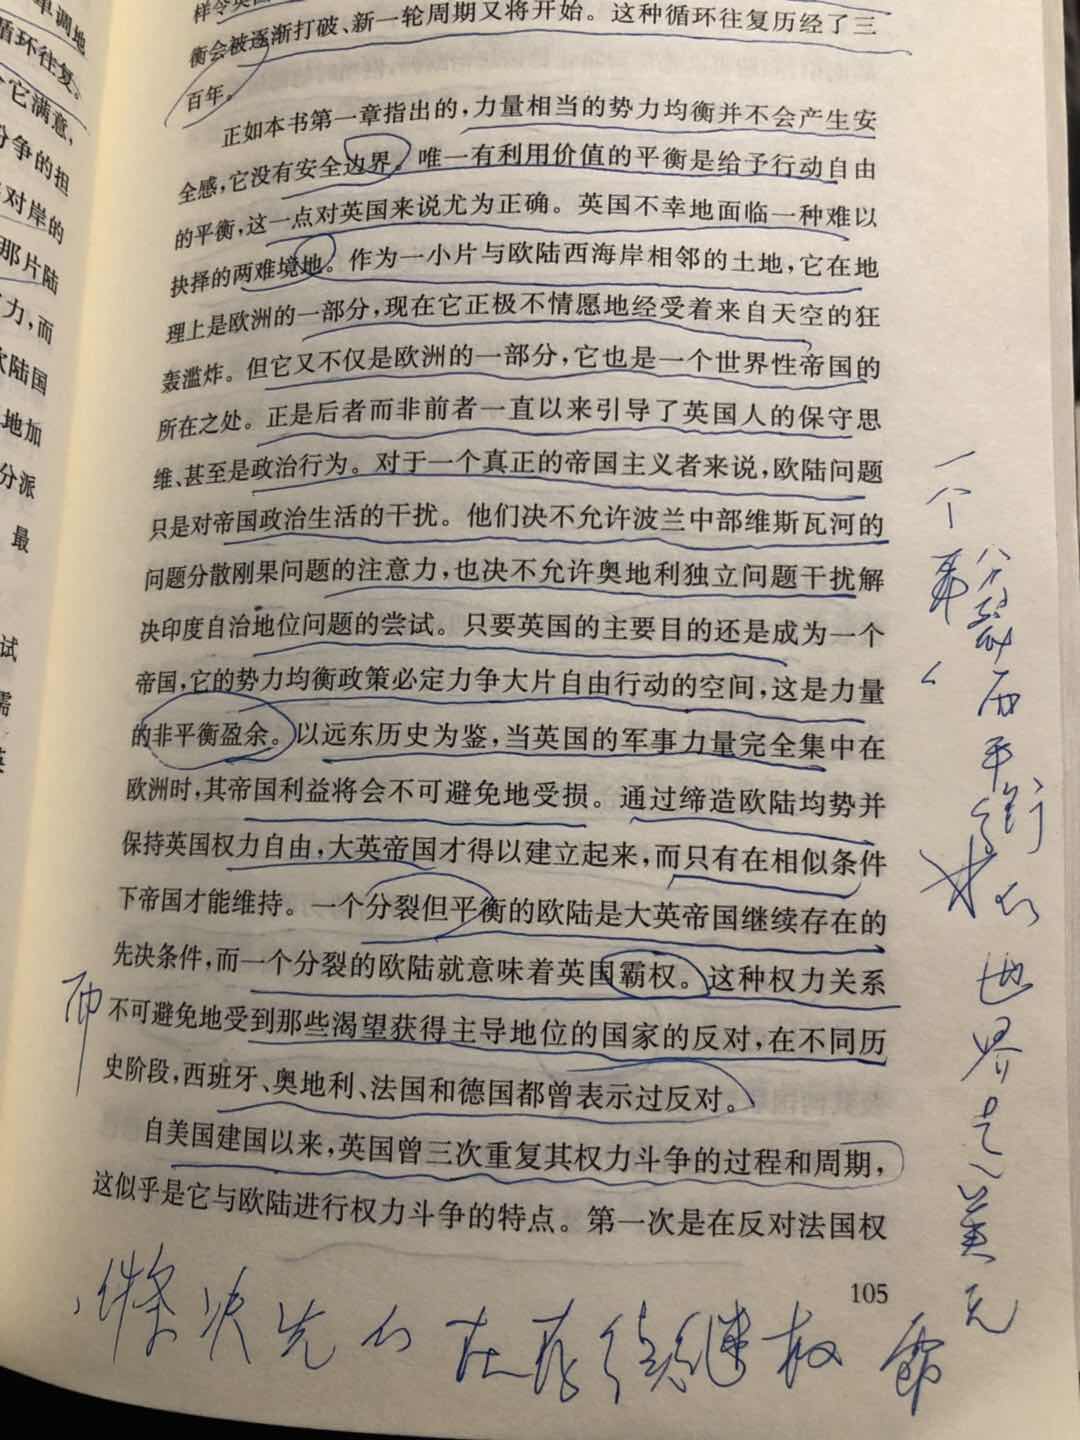 单调地
循环往复。
它满意，
分争的担
对岸的
那片陆
力，而
欧陆国
地加
分派
最
试
需
衡会被逐渐打破、新一轮周期又将开始。这种循环往复历经了三
百年。
正如本书第一章指出的，力量相当的势力均衡并不会产生安
全感，它没有安全边界。唯一有利用价值的平衡是给予行动自由
的平衡，这一点对英国来说尤为正确。英国不幸地面临一种难以
抉择的两难境地。作为一小片与欧陆西海岸相邻的土地，它在地
理上是欧洲的一部分，现在它正极不情愿地经受着来自天空的狂
轰滥炸。但它又不仅是欧洲的一部分，它也是一个世界性帝国的
所在之处。正是后者而非前者一直以来引导了英国人的保守思
维、甚至是政治行为。对于一个真正的帝国主义者来说，欧陆问题
只是对帝国政治生活的干扰。他们决不允许波兰中部维斯瓦河的
问题分散刚果问题的注意力，也决不允许奥地利独立问题干扰解
决印度自治地位问题的尝试。只要英国的主要目的还是成为一个
帝国，它的势力均衡政策必定力争大片自由行动的空间，这是力量
的非平衡盈余。以远东历史为鉴，当英国的军事力量完全集中在
欧洲时，其帝国利益将会不可避免地受损。通过缔造欧陆均势并
保持英国权力自由，大英帝国才得以建立起来，而只有在相似条件
下帝国才能维持。一个分裂但平衡的欧陆是大英帝国继续存在的
先决条件，而一个分裂的欧陆就意味着英国霸权。这种权力关系
不可避免地受到那些渴望获得主导地位的国家的反对，在不同历
史阶段，西班牙、奥地利、法国和德国都曾表示过反对。
自美国建国以来，英国曾三次重复其权力斗争的过程和周期，
这似乎是它与欧陆进行权力斗争的特点。第一次是在反对法国权
105
而
一个
分裂而平衡的世界是美元
霸权继续存在的先决条件